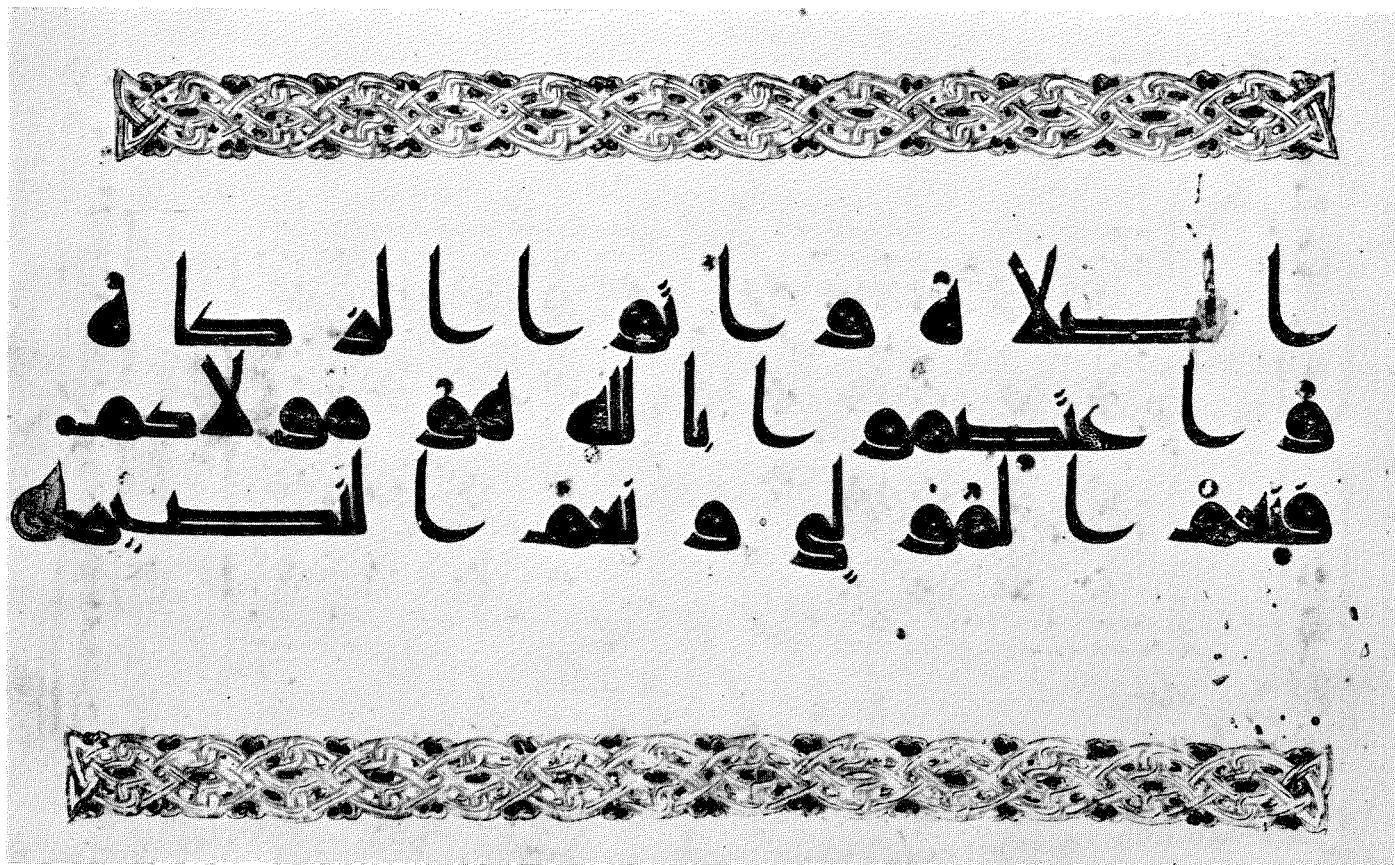 ا الصلاة و ا توا ا لز كا ة
و ا عتصموا با لله هو مو لا كم
فنعم ا لمو لى و نعم ا لنصير